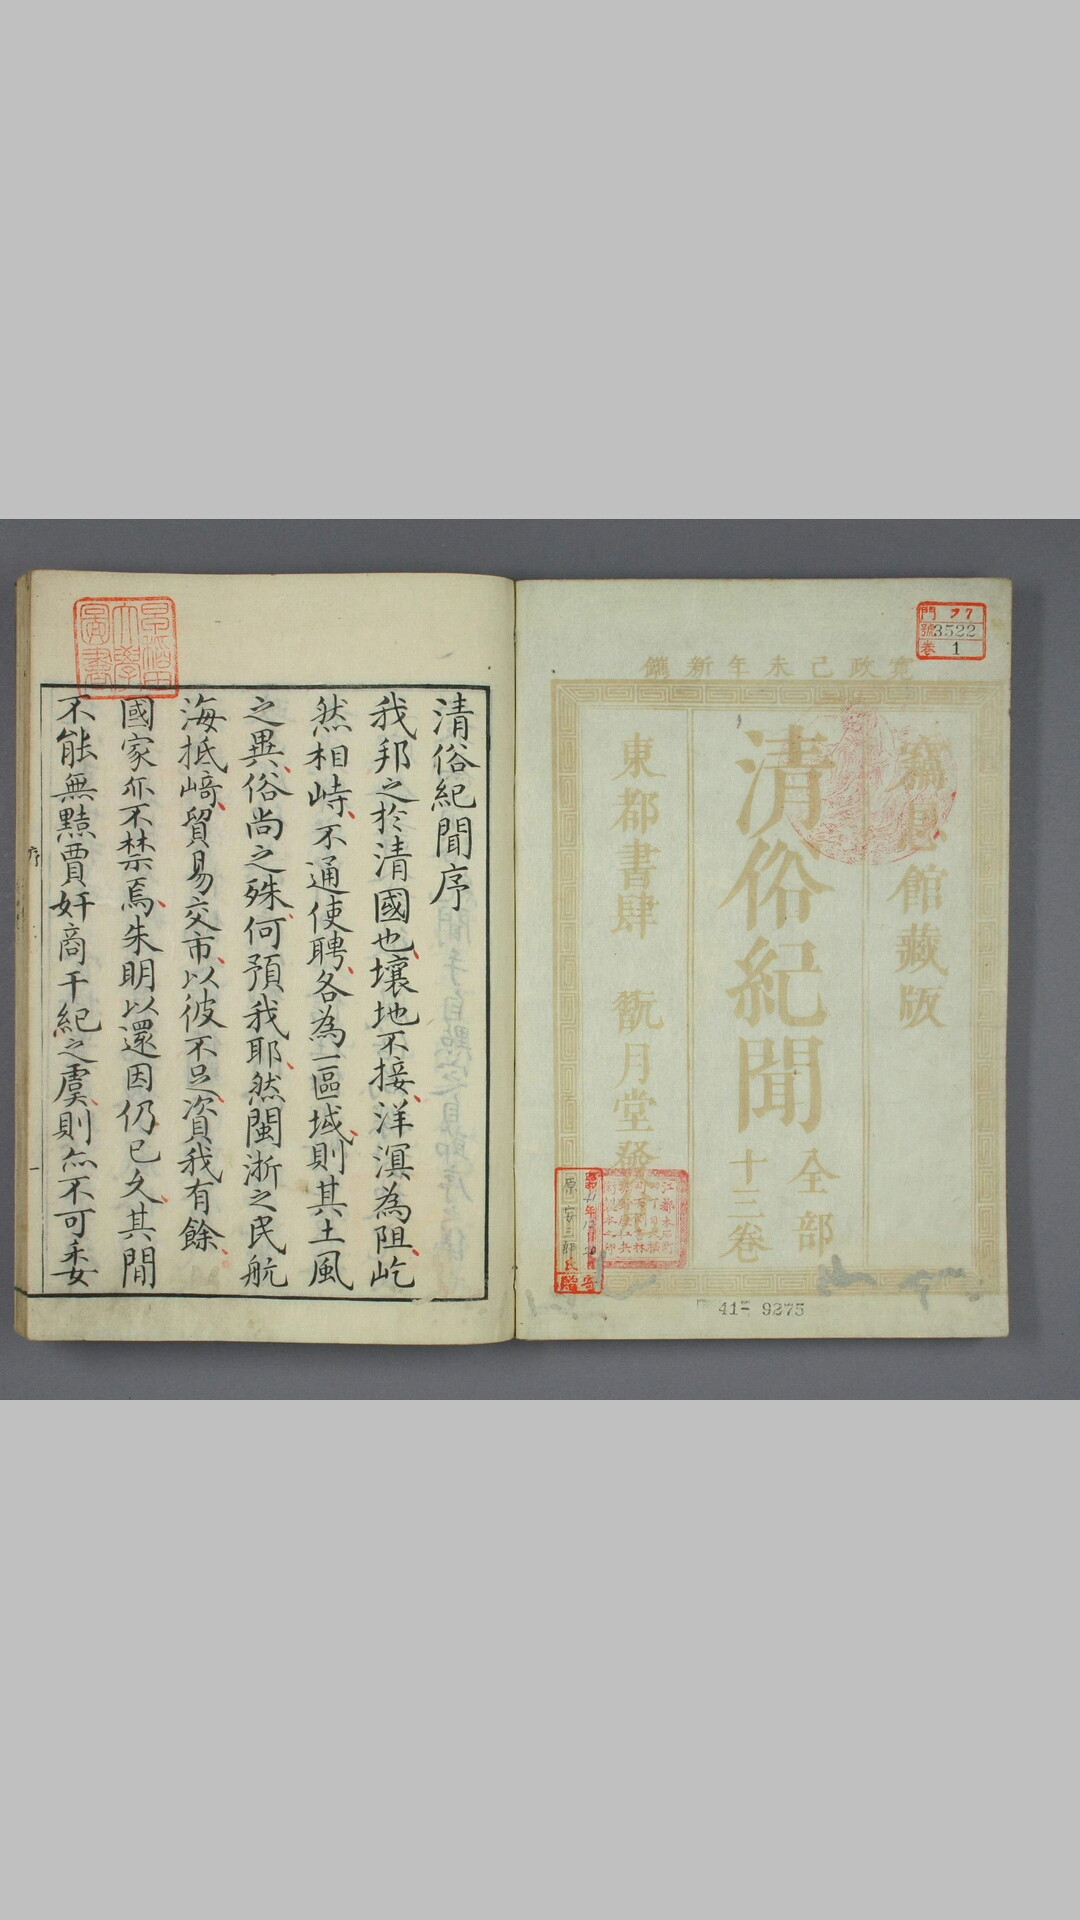 寛政己未年新鐫
竊恩館藏版
清俗紀聞
全部
十三卷
東都書肆 翫月堂發
門 77
號 3522
卷 1
41-9275
清俗紀聞序
我邦之於清國也壤地不接洋溟為阻屹
然相峙不通使聘各為一區域則其土風
之異俗尚之殊何預我耶然閩浙之民航
海抵﨑貿易交市以彼不足資我有餘
國家亦不禁焉朱明以還因仍已久其間
不能無黠賈奸商干紀之虞則亦不可委
序
一
早稻田大學圖書